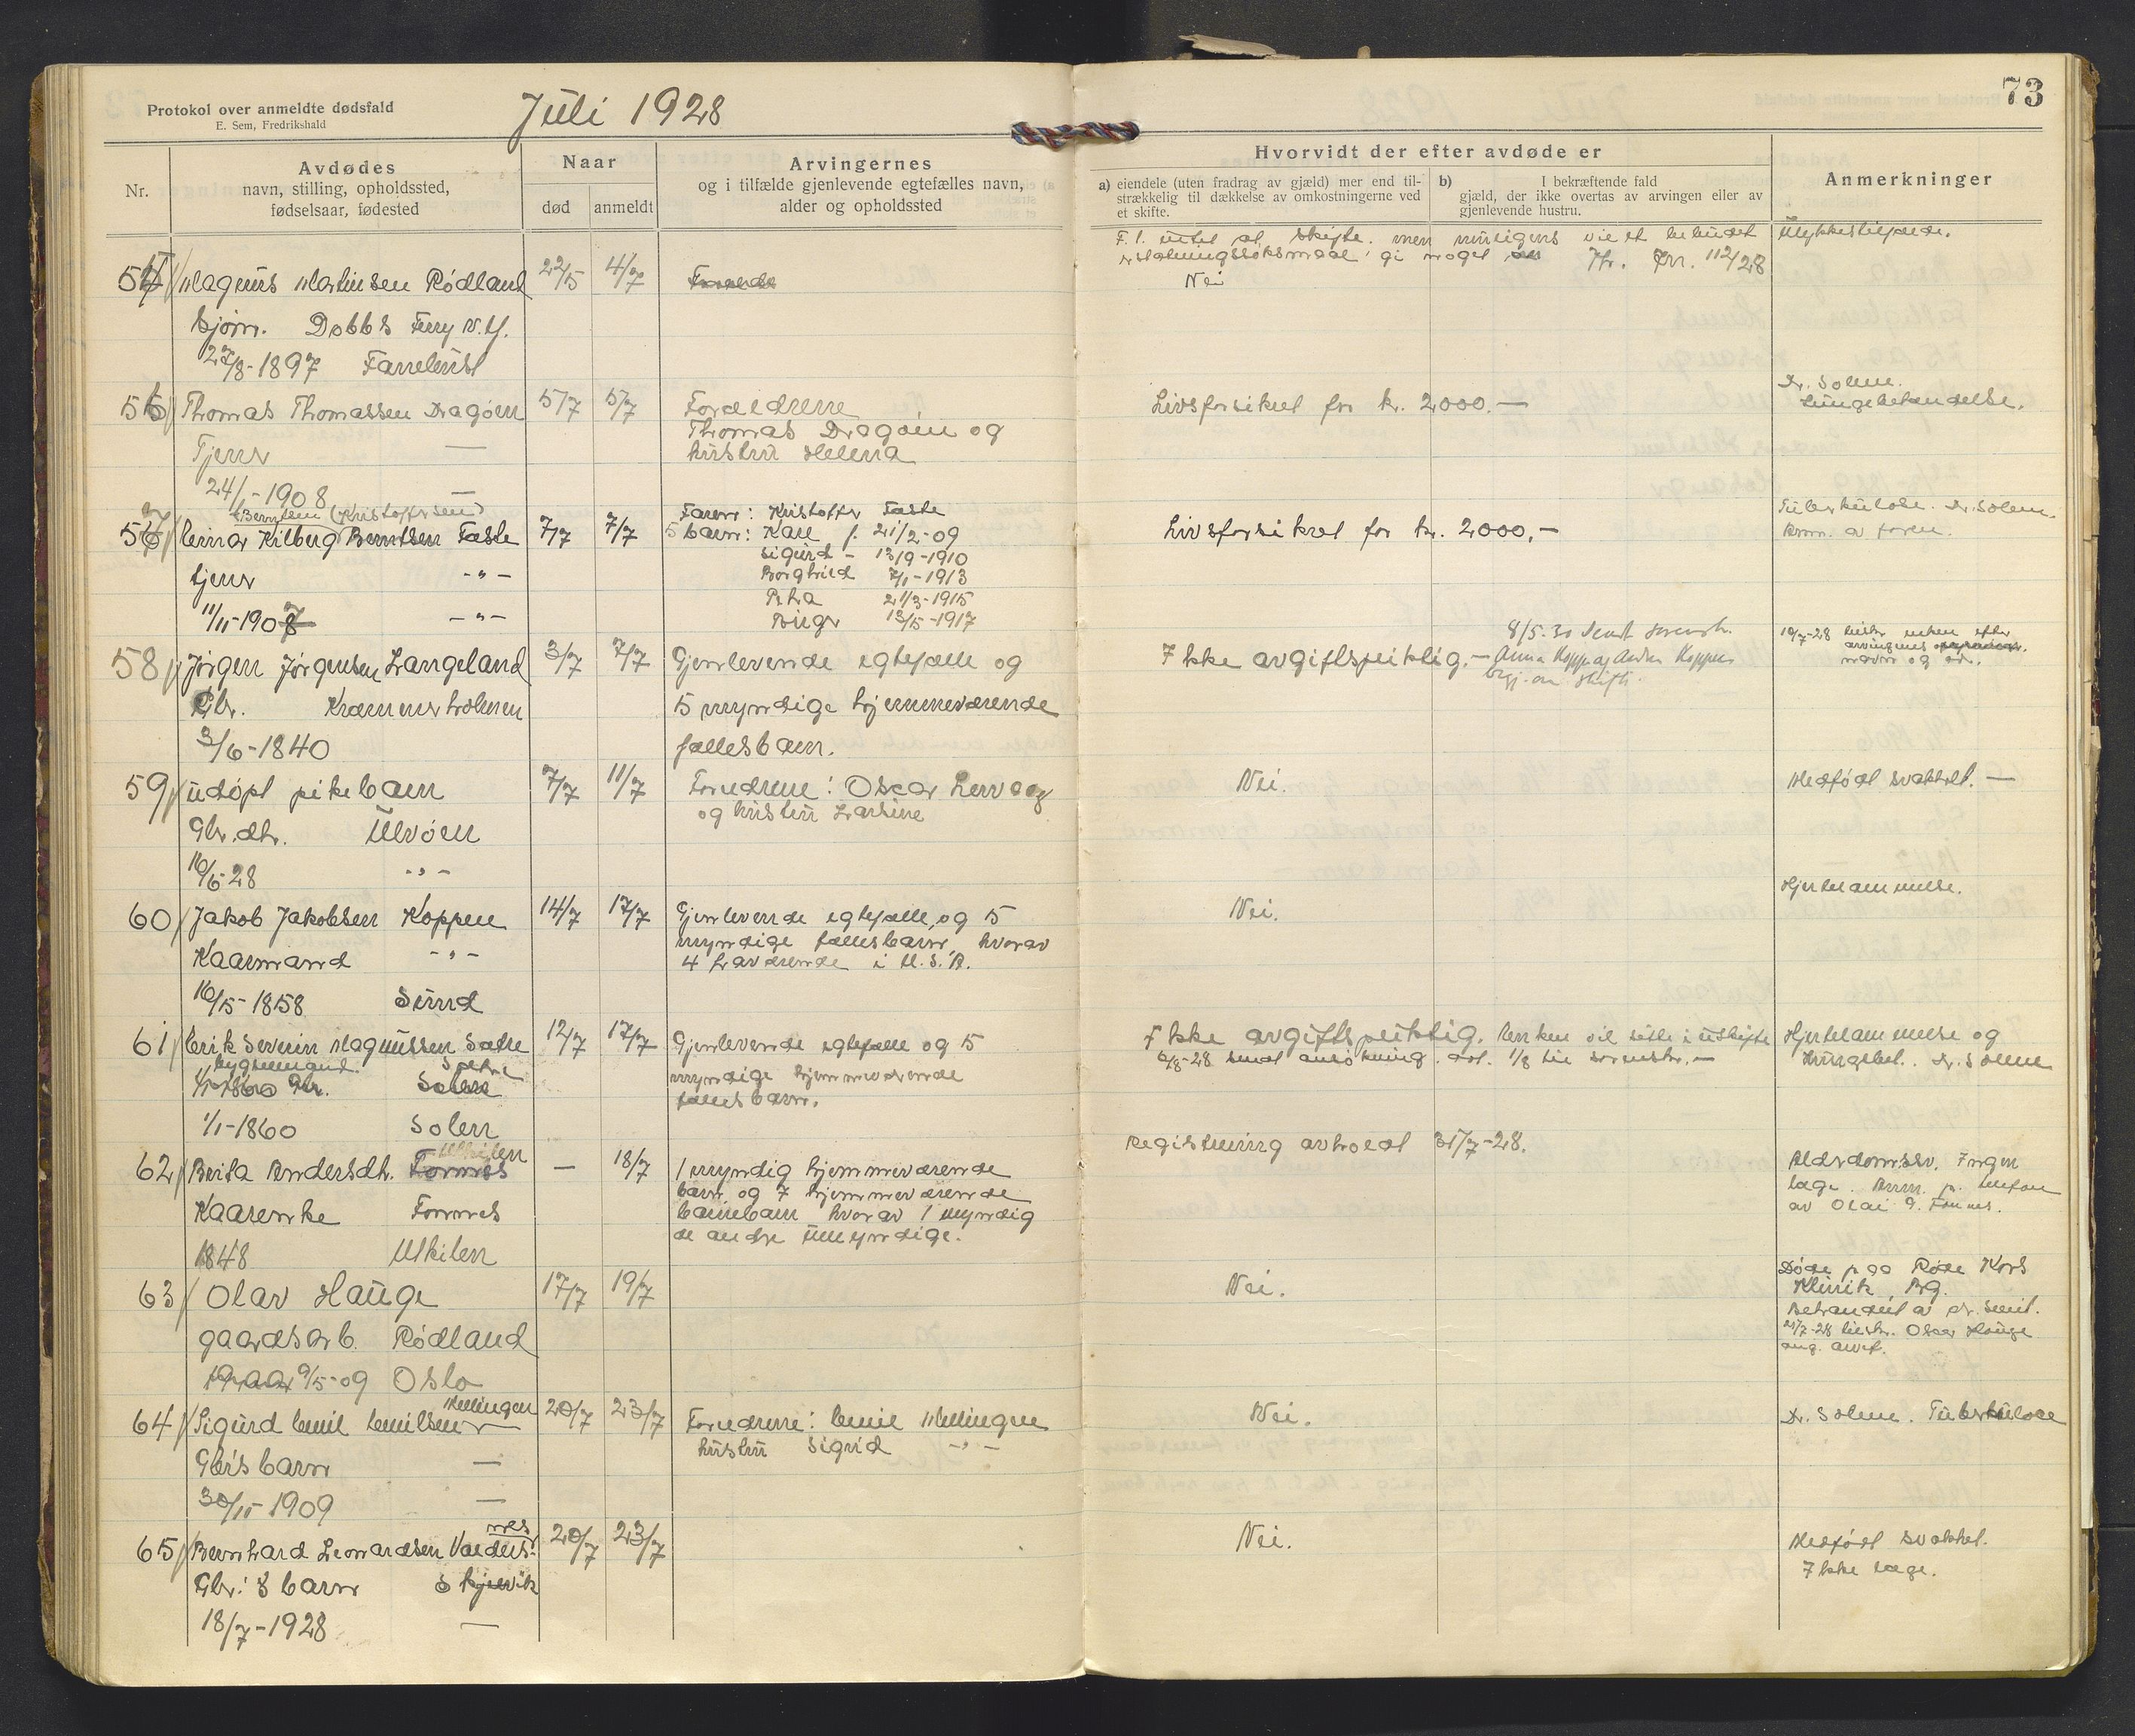 Protokol over anmeldte dødsfald
E. Sem, Fredrikshald
Juli 1928
73
Nr.
Avdødes
navn, stilling, opholdssted,
fødselsaar, fødested
Naar
død
anmeldt
Arvingernes
og i tilfælde gjenlevende egtefælles navn,
alder og opholdssted
Hvorvidt der efter avdøde er
a) eiendele (uten fradrag av gjæld) mer end til-
strækkelig til dækkelse av omkostningerne ved
et skifte.
b) I bekræftende fald
gjæld, der ikke overtas av arvingen eller av
gjenlevende hustru.
Anmerkninger
55/ Magnus Martinsen Rødland 22/5 4/7
Sjøm. Dobbs Ferry N.Y.
27/8-1897
F. l. intet at skifte. men muligens vil et
gi noget Jnr. 112/28
Nei
Ulykkestilfælde.
56/ Thomas Thomassen Dragøen 5/7 5/7
Tjener —
24/1-1908 —
Forældrene
Thomas Dragøen og
hustru Helena
Livsforsikret for kr. 2000.—
Dr. Solem.
Lungebetændelse.
57/ Einar Kilberg Berntsen Taste 7/7 7/7
Berntsen (Kristoffersen)
tjener -"-
11/11-1907 -"-
Faren: Kristoffer Taste
5 barn: Kåre f. 21/2-09
Sigurd - 13/9-1910
Borghild 7/1-1913
Petra 21/3-1915
Birger 13/5-1917
Livsforsikret for kr. 2000,-
Tuberkulose. Dr. Solem.
Anm. av faren.
58/ Jørgen Jørgensen Langeland 3/7 7/7
Gbr. Kræmmerholmen
3/6-1840
Gjenlevende egtefælle og
5 myndige hjemmeværende
fællesbarn.
Ikke avgiftspliktig.—
8/5-30 Sendt sorenskr.
Anna Koppen og Anders Koppen
begj. om skifte.
10/7-28 tilskr. enken efter
arvingenes
navn og ad.
59/ udøpt pikebarn 7/7 11/7
Gbr.dtr. Ulvøen
16/6-28 -"-
Forældrene: Oscar Lervaag
og hustru Larsine
Nei.
Medfødt svakhet.—
60/ Jakob Jakobsen Koppen 14/7 17/7
Kaarmand -"-
16/5-1858 Sund
Gjenlevende egtefælle, og 5
myndige fællesbarn, hvorav
4 fraværende i U.S.A.
Nei.
Hjertelammelse.
61/ Erik Severin Magnussen Sætre 12/7 17/7
bygselmand. Sætre
1/1-1860 Gbr. Solem
1/1-1860 Solem
Gjenlevende egtefælle og 5
myndige hjemmeværende
fællesbarn.
Ikke avgiftspliktig. Enken vil sitte i uskifte
6/8-28 sendt ansøkning. 1/8 til sorenskr.—
Hjertelammelse og
Lungebet. Dr. Solem
62/ Berta Andersdtr. Fonnes — 18/7
Ulkilen
Kaarenke Fonnes
1848 Ulkilen
1 myndig hjemmeværende
barn og 7 hjemmeværende
barnebarn hvorav 1 myndig
de andre umyndige.
Registrering avholdt 31/7-28.
Alderdomssv. Ingen
læge. Anm. p. telefon
av Olai A. Fonnes.
63/ Olav Hauge 17/7 19/7
gaardsarb. Rødland
9/5-09 Oslo
Nei.
Døde paa Røde Kors
Klinik, Bg.
Behandlet av dr. Smit.
21/7-28 tilskr. Oscar Hauge
ang. arvef.
64/ Sigurd Emil Emilsen Mellingen 20/7 23/7
Gbr's barn —
30/11-1909 —
Forældrene: Emil Mellingen
hustru Sigrid -"-
Nei.
Dr. Solem. Tuberkulose
65/ Bernhard Leonardsen Valdersnes 20/7 23/7
Gbr.'s barn Skjelvik
18/7-1928 —
Nei.
Medfødt svakhet.
Ikke læge.